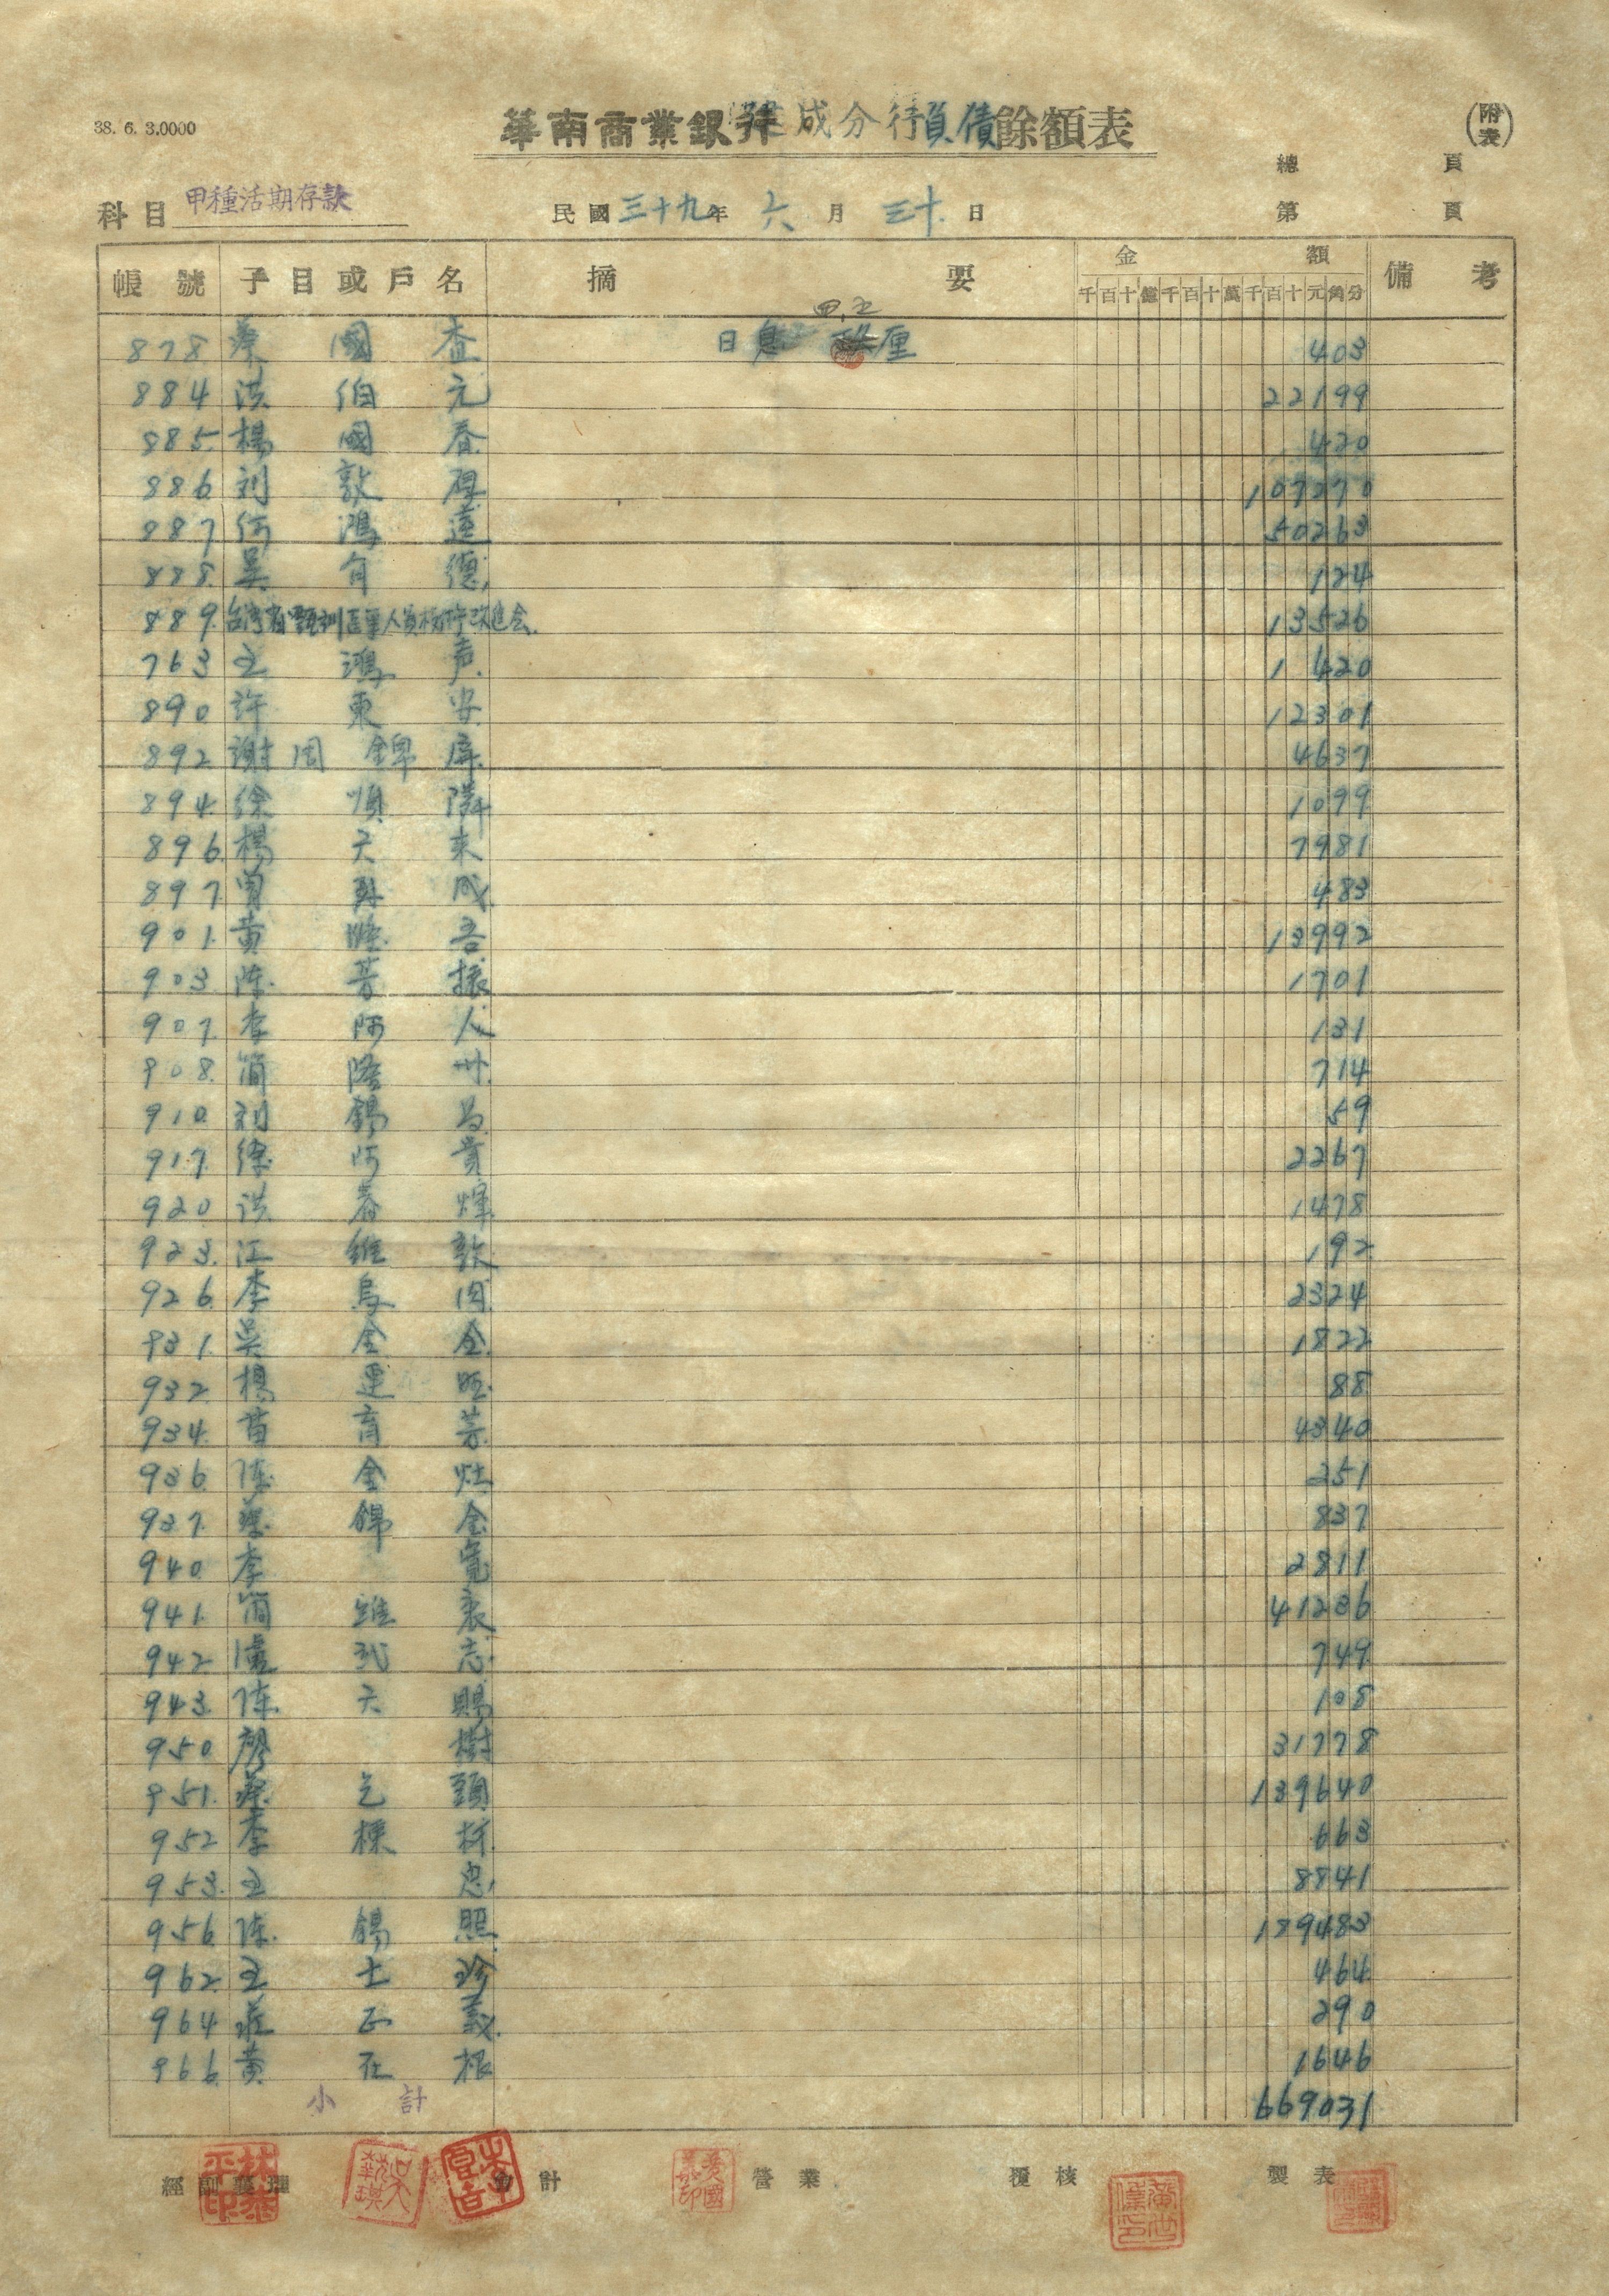 38. 6. 3,0000
華南商業銀行建成分行負債餘額表
(附表)
總 頁
科目 甲種活期存款
民國三十九年 六 月 三十 日
第 頁
帳號 子目或戶名 摘要 金額 備考
千百十億千百十萬千百十元角分
四.五
878 蔡國 日息 厘 403
884 洪伯元 22199
885. 楊國春 420
886. 刘敦厚 107270
887 何鴻 50263
888. 吳有德 124
889. 台湾省 人員 改進会 13526
763 王鴻声 1 420
890 許東安 12301
892 謝周錦屏 4637
894. 徐順隣 1099
896. 楊天來 7981
897 曾成 483
901. 黄吾 13992
903 陈芳振 1701
907. 李阿人 131
908. 簡隆 714
910 刘錫昌 59
917. 徐阿貴 2267
920 洪春輝 1478
923. 江維敦 192
926. 李烏肉 2324
931. 吳金全 1822
932. 楊運旺 88
934. 苗育芳 4340
936. 陈金灶 251
937. 蔡錦金 837
940 李寬 2811
941. 簡 41236
942 盧武志 749
943. 陈天賜 108
950 廖樹 31778
951. 蔡乞頭 139640
952 李標林 663
953. 王忠 8841
956. 陈錫照 189483
962. 王士珍 464
964 莊正義 290
966. 黄在根 1646
小計 669031
經副襄理 會計 營業 覆核 製表